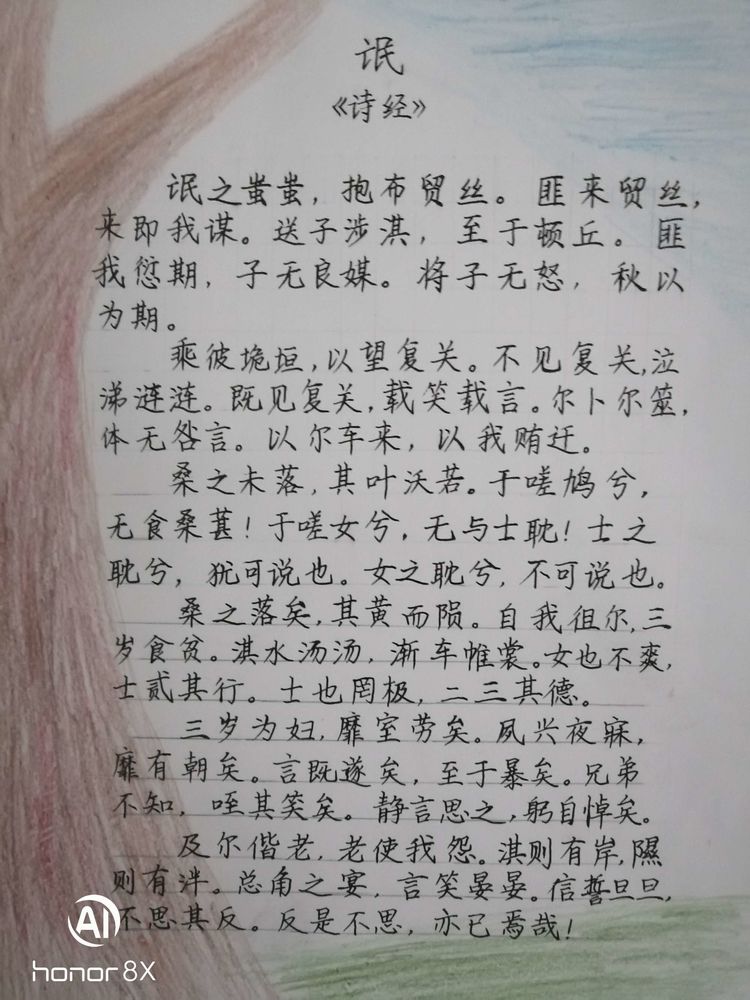 氓
《诗经》
氓之蚩蚩，抱布贸丝。匪来贸丝，
来即我谋。送子涉淇，至于顿丘。匪
我愆期，子无良媒。将子无怒，秋以
为期。
乘彼垝垣，以望复关。不见复关，泣
涕涟涟。既见复关，载笑载言。尔卜尔筮，
体无咎言。以尔车来，以我贿迁。
桑之未落，其叶沃若。于嗟鸠兮，
无食桑葚！于嗟女兮，无与士耽！士之
耽兮，犹可说也。女之耽兮，不可说也。
桑之落矣，其黄而陨。自我徂尔，三
岁食贫。淇水汤汤，渐车帷裳。女也不爽，
士贰其行。士也罔极，二三其德。
三岁为妇，靡室劳矣。夙兴夜寐，
靡有朝矣。言既遂矣，至于暴矣。兄弟
不知，咥其笑矣。静言思之，躬自悼矣。
及尔偕老，老使我怨。淇则有岸，隰
则有泮。总角之宴，言笑晏晏。信誓旦旦，
不思其反。反是不思，亦已焉哉！
AI
honor 8X